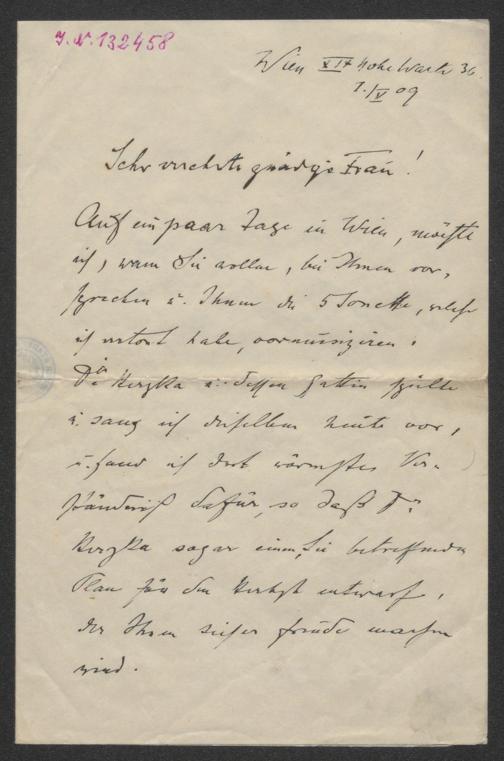 J.N. 132458
Wien XIX Hohe Warte 36
1./V 09
Sehr verehrte gnädige Frau!
Auf ein paar Tage in Wien, möchte
ich, wann Sie wollen, bei Ihnen vor-
sprechen u. Ihnen die 5 Sonette, welche
ich vertont habe, vormusizieren.
Herzka u. dessen Gattin spielte
u. sang ich dieselben heute vor,
u. fand ich dort wärmstes Ver-
ständniß dafür, so daß
Herzka sogar einen, Sie betreffenden
Plan für den Herbst entwarf,
der Ihnen sicher Freude machen
wird.